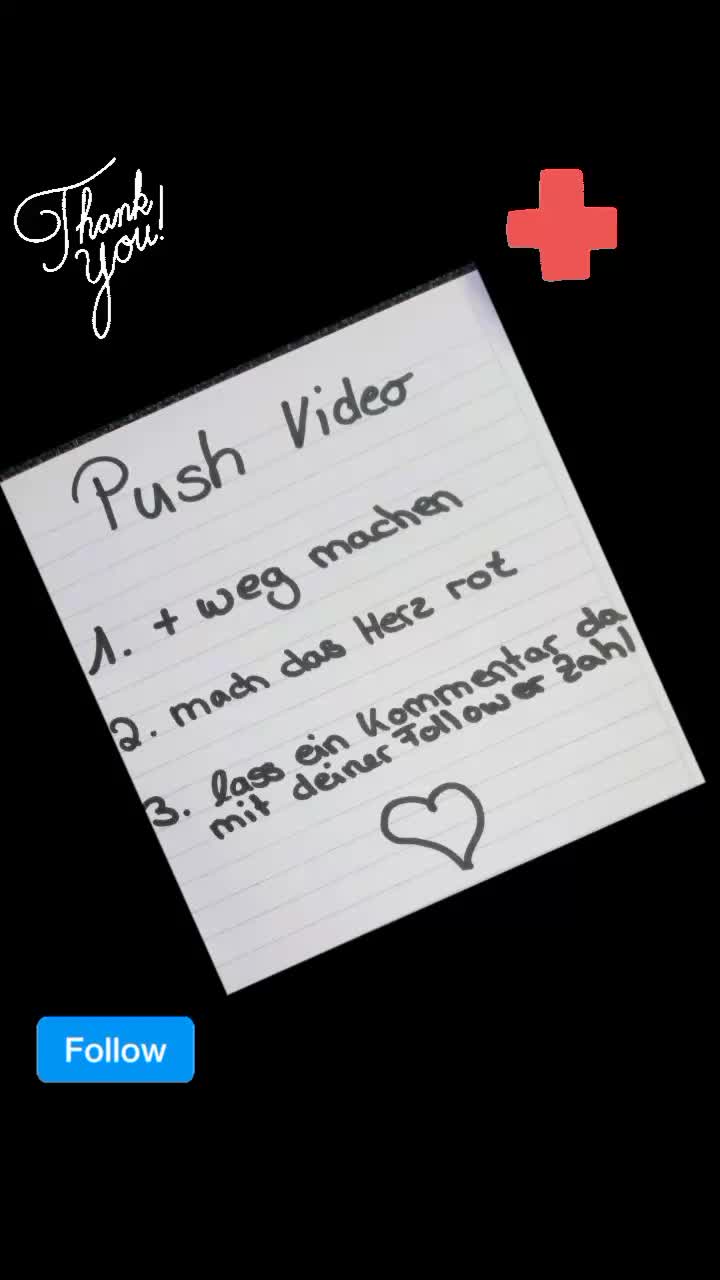 Thank
You!
Push Video
1. + weg machen
2. mach das Herz rot
3. lass ein Kommentar da
mit deiner Follower Zahl
Follow